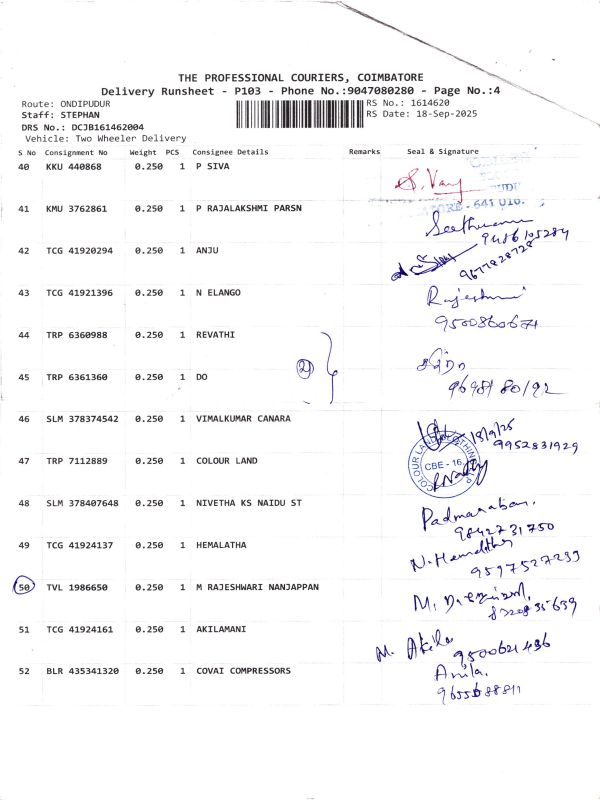 THE PROFESSIONAL COURIERS, COIMBATORE
Delivery Runsheet - P103 - Phone No.:9047080280 - Page No.:4
Route: ONDIPUDUR
RS No.: 1614620
Staff: STEPHAN
RS Date: 18-Sep-2025
DRS No.: DCJB161462004
Vehicle: Two Wheeler Delivery
S No Consignment No Weight PCS Consignee Details Remarks Seal & Signature
40 KKU 440868 0.250 1 P SIVA
- 641 016.
41 KMU 3762861 0.250 1 P RAJALAKSHMI PARSN
9486105284
42 TCG 41920294 0.250 1 ANJU
9677828728
43 TCG 41921396 0.250 1 N ELANGO
9500860671
44 TRP 6360988 0.250 1 REVATHI
2
45 TRP 6361360 0.250 1 DO
46 SLM 378374542 0.250 1 VIMALKUMAR CANARA
18/9/25
9952831929
47 TRP 7112889 0.250 1 COLOUR LAND
COLOUR LAND
CBE - 16
48 SLM 378407648 0.250 1 NIVETHA KS NAIDU ST
Padmanaban.
9842731750
49 TCG 41924137 0.250 1 HEMALATHA
N. Hemalatha
9597527239
50 TVL 1986650 0.250 1 M RAJESHWARI NANJAPPAN
51 TCG 41924161 0.250 1 AKILAMANI
M. Akila
9500621436
52 BLR 435341320 0.250 1 COVAI COMPRESSORS
Anila.
9655688811